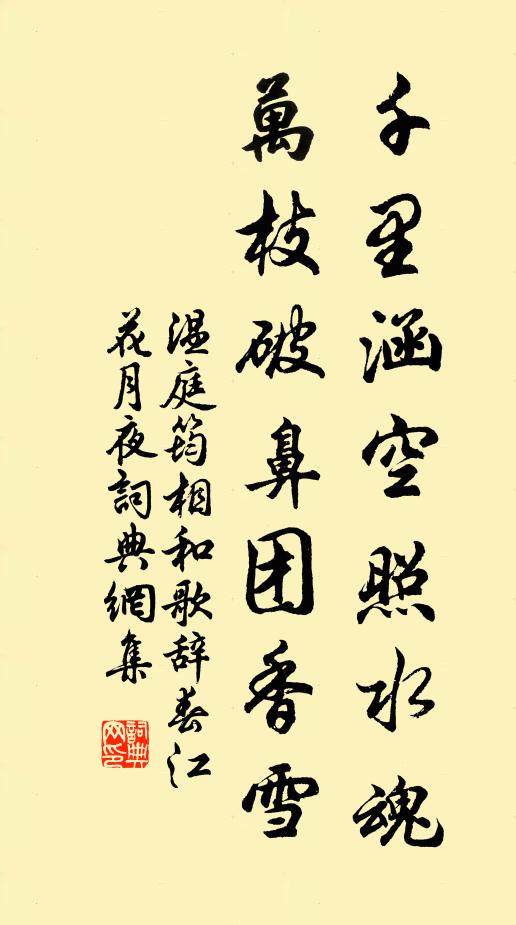 千里涵空照水魂
萬枝破鼻团香雪
温庭筠相和歌辞春江
花月夜詞典網集
詞典網印